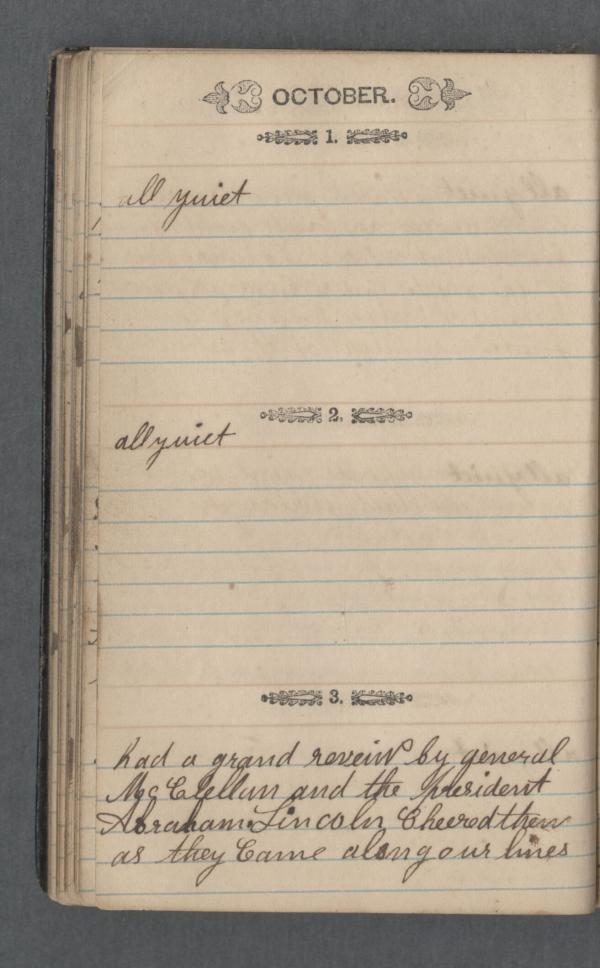 OCTOBER.
1.
all quiet
2.
all quiet
3.
had a grand reveiw by general
McClellan and the president
Abraham Lincoln Cheered them
as they Came along our lines